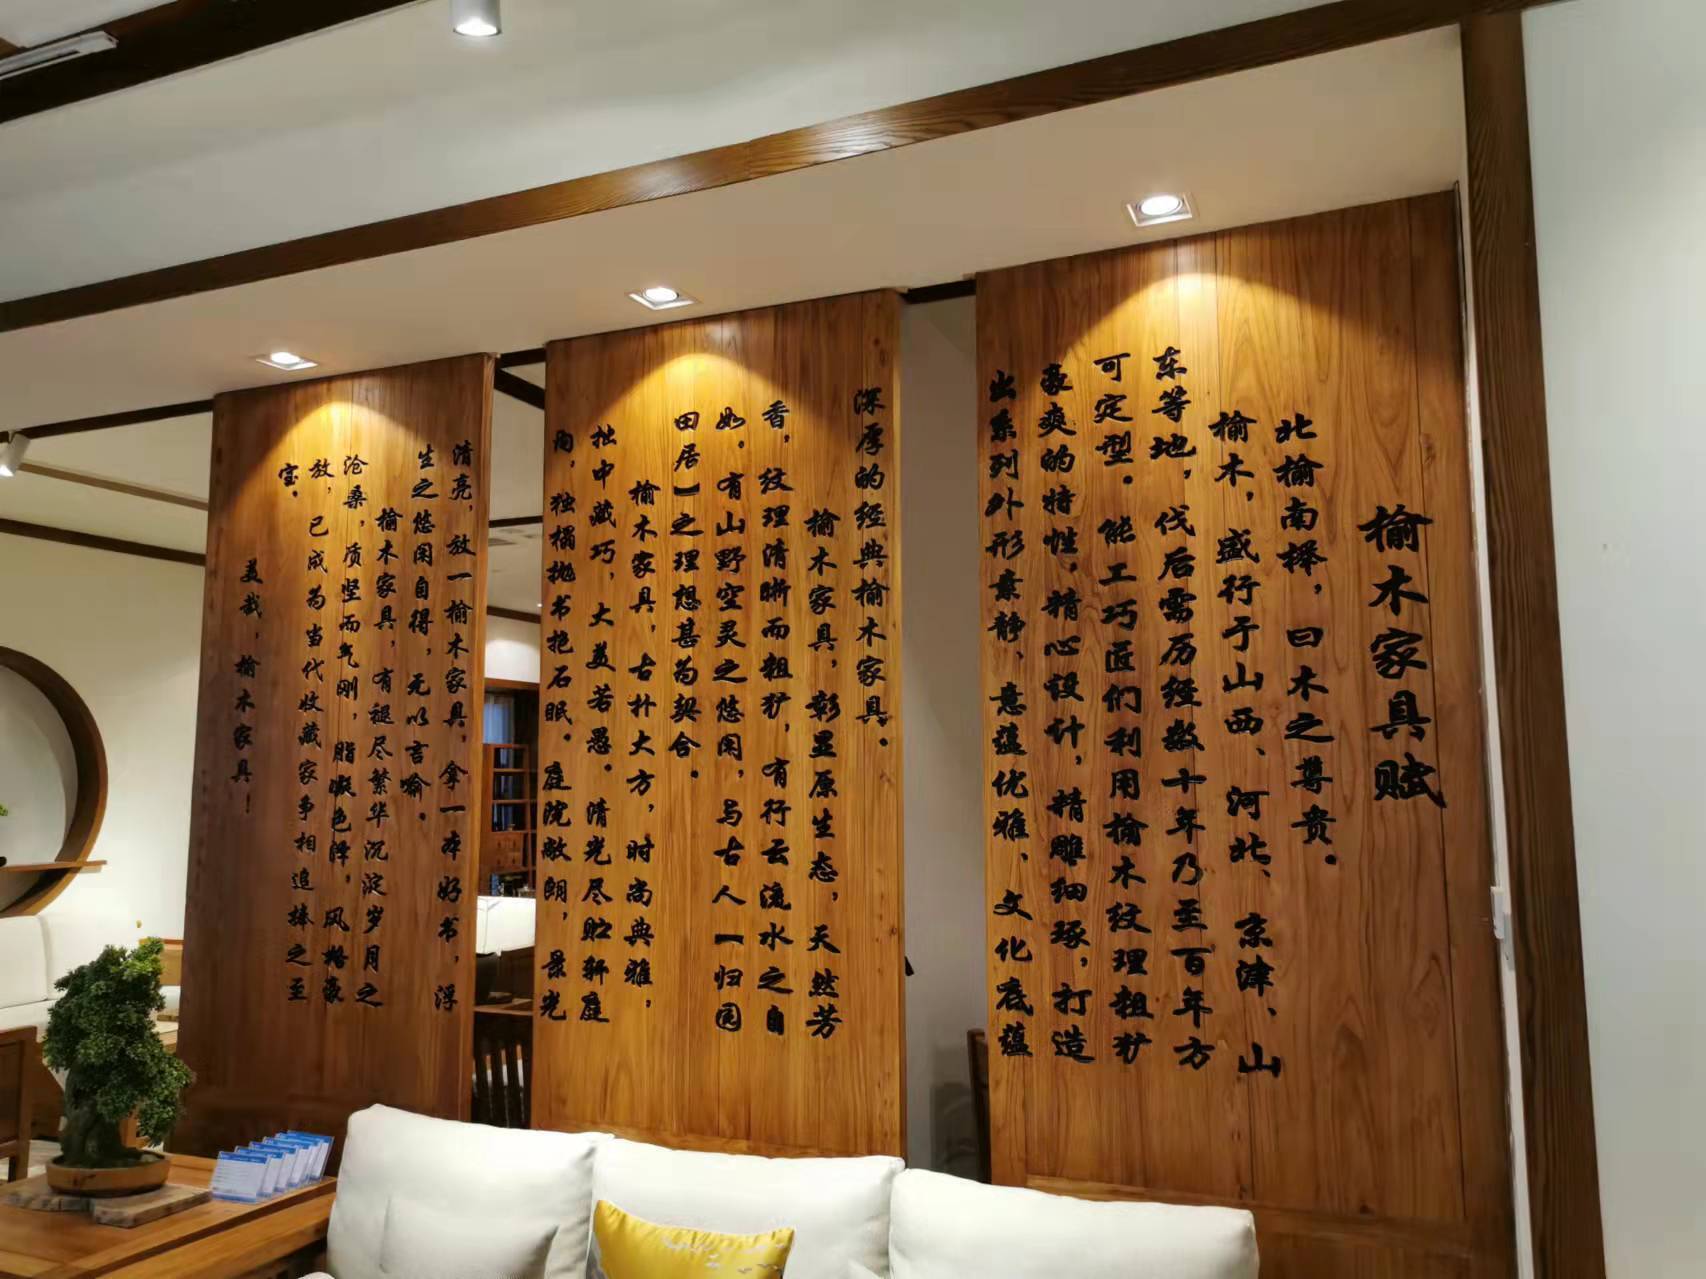 榆木家具赋
北榆南榉，曰木之尊贵。
榆木，盛行于山西、河北、京津、山
东等地，伐后需历经数十年乃至百年方
可定型。能工巧匠们利用榆木纹理粗犷
豪爽的特性，精心设计，精雕细琢，打造
出系列外形素静、意蕴优雅、文化底蕴
深厚的经典榆木家具。
榆木家具，彰显原生态，天然芳
香，纹理清晰而粗犷，有行云流水之自
如，有山野空灵之悠闲，与古人一归园
田居】之理想甚为契合。
榆木家具，古朴大方，时尚典雅，
拙中藏巧，大美若愚。清光尽贮轩庭
内，独榻抛书抱石眠。庭院敞朗，景光
清亮，放一榆木家具，拿一本好书，浮
生之悠闲自得，无以言喻。
榆木家具，有褪尽繁华沉淀岁月之
沧桑，质坚而气刚，脂凝色泽，风格豪
放，已成为当代收藏家争相追捧之至
宝。
美哉，榆木家具！